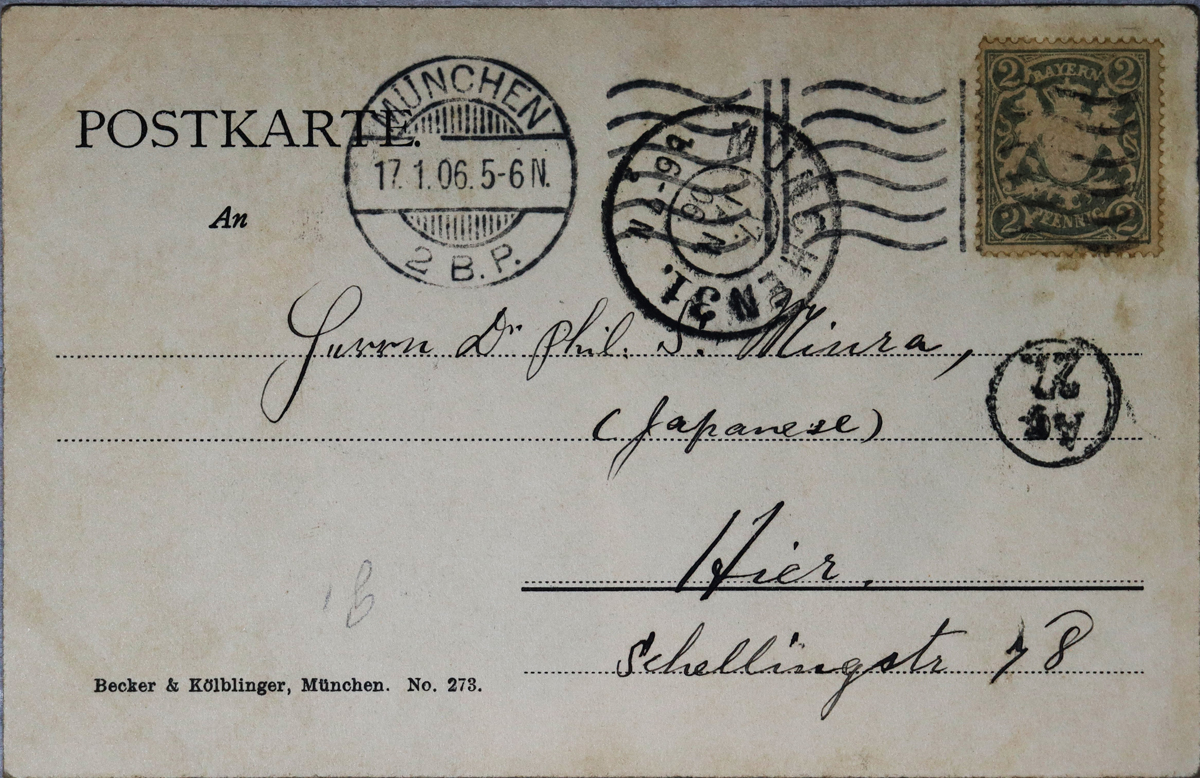 POSTKARTE.
An
MÜNCHEN
17. 1. 06. 5-6 N.
2 B.P.
MÜNCHEN 31.
2 BAYERN 2
2 PFENNIG 2
Herrn Dr phil. S. Miura,
(Japanese)
Hier.
Schellingstr 78
Becker & Kölblinger, München. No. 273.